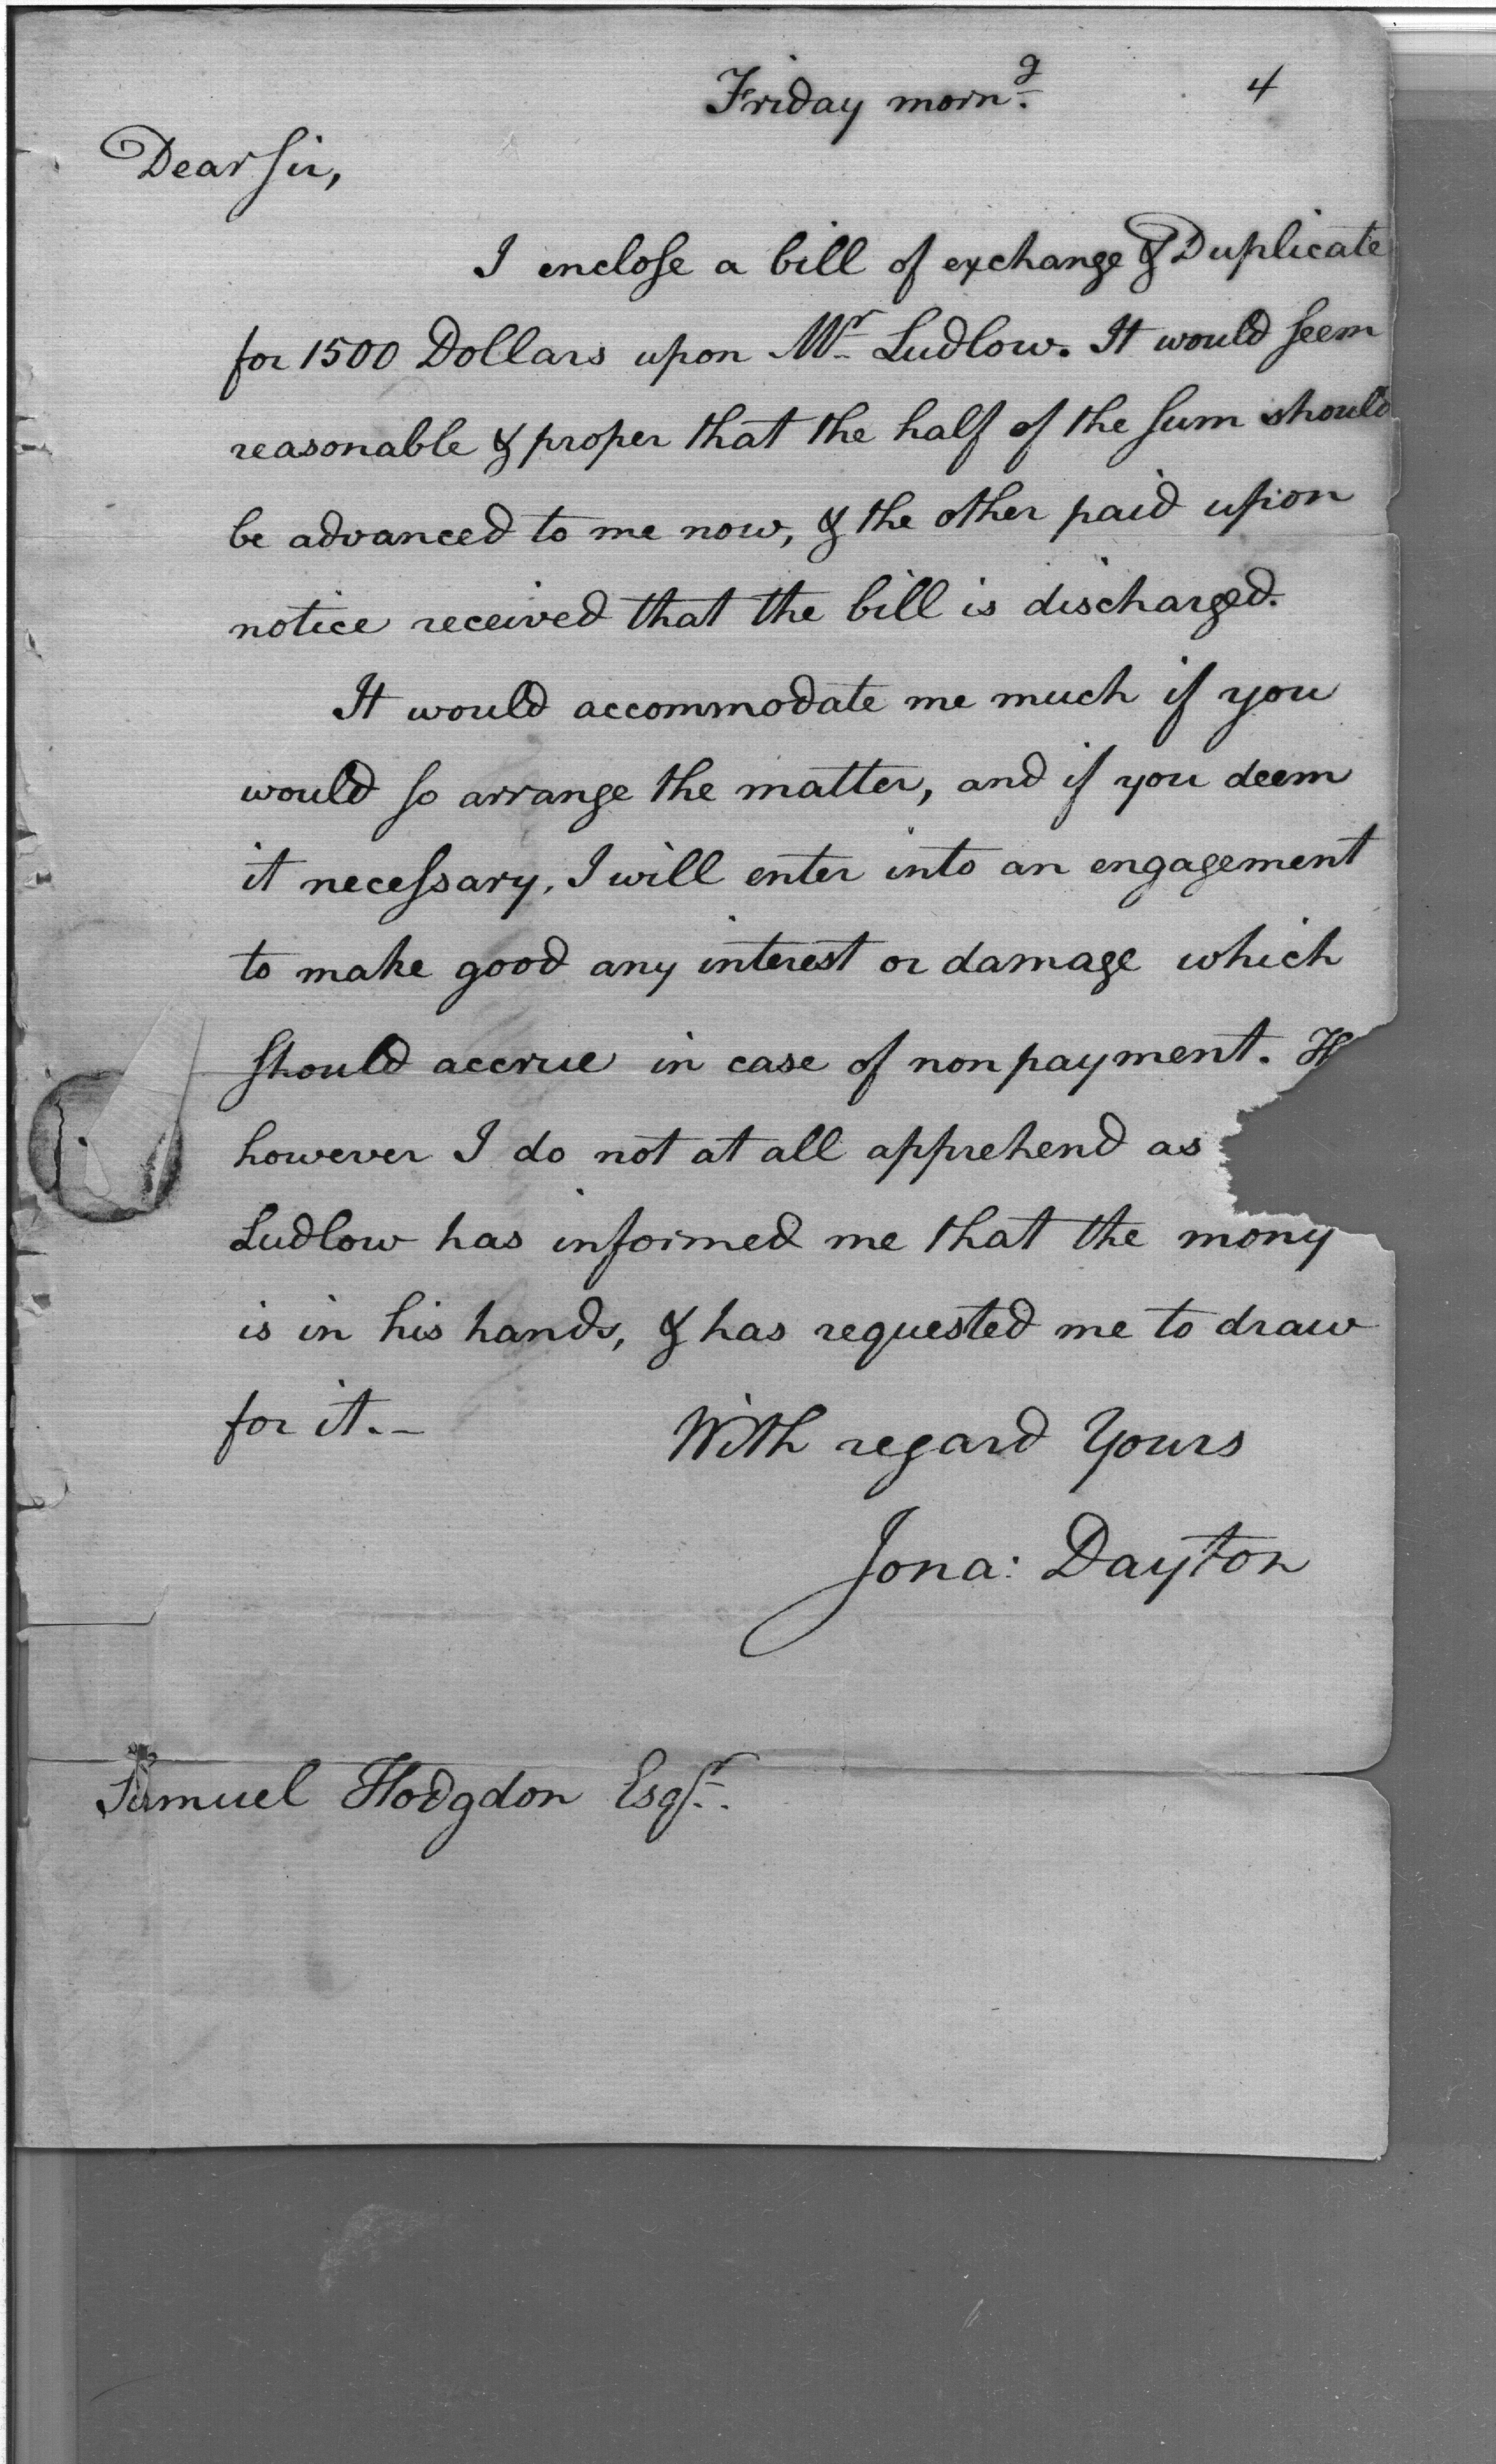 Friday morng. 4
Dear Sir,
I enclose a bill of exchange & Duplicate
for 1500 Dollars upon Mr. Ludlow. It would seem
reasonable & proper that the half of the sum should
be advanced to me now, & the other paid upon
notice received that the bill is discharged.
It would accommodate me much if you
would so arrange the matter, and if you deem
it necessary, I will enter into an engagement
to make good any interest or damage which
should accrue in case of non payment.
however I do not at all apprehend as
Ludlow has informed me that the mony
is in his hands, & has requested me to draw
for it.-
With regard Yours
Jona: Dayton
Samuel Hodgdon Esqr.